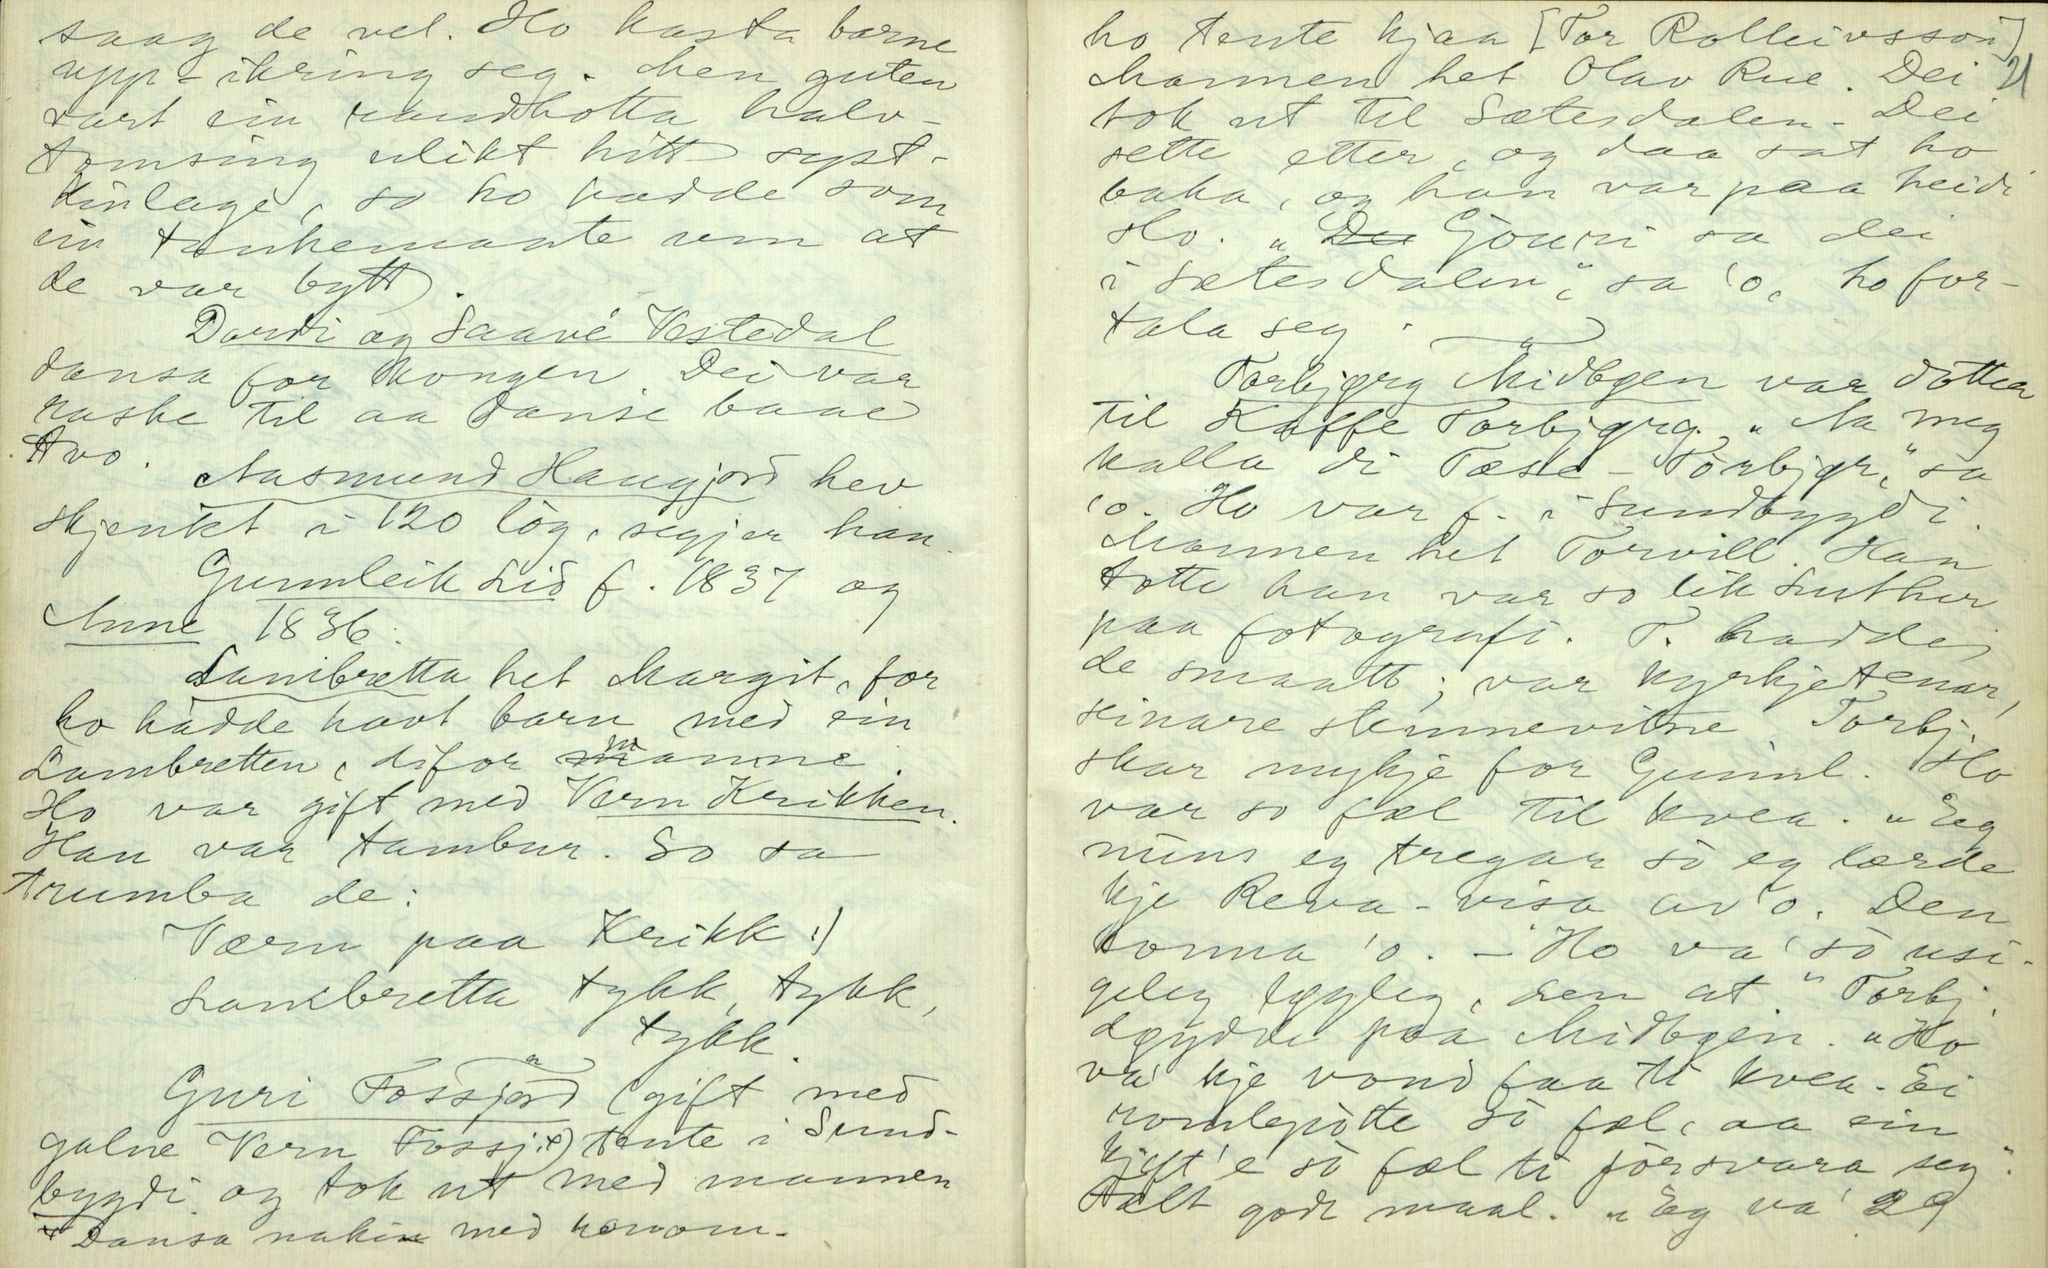 saag de vel. Ho kasta borne
upp-ikring seg. Men guten
vart ein rundhotta halv-
tomsing ulikt hitt syst-
kinlage, so ho hadde som
ein tankemaate um at
de var bytt.
Dordi og Saavé Vestedal
dansa for kongen. Dei var
raske til aa danse baae
tvo.
Aasmund Haugjord hev
skjenkt i 120 lög, segjer han.
Gunnleik Lid f. 1837 og
Anne 1836.
Lambretta het Margit, for
ho hadde havt barn med ein
Lambretten, difor manne.
Ho var gift med Vern Krikken.
Han var tambur. So sa
trumba de:
Værn paa Krikk!)
Lambretta tykk, tykk,
tykk.
Guri Fossjord (gift med
galne Vern Fossj.x) tente i Sund-
bygdi og tok ut med mannen
x Dansa nakin med honom.
ho tente hjaa [Tor Rolleivsson]
21
Mannen het Olav Rue. Dei
tok ut til Sætesdalen. Dei
sette etter, og daa sat ho
baka, og han var paa heidi
Ho. "Du Göuri sa dei
i Sætesdalen", sa 'o, ho for-
tala seg.
Torbjørg Midbøen var dotter
til Kaffe Torbjørg. "Aa meg
kalla di Tæse-Torbjør," sa
'o. Ho var f. i Sundbygdi.
Mannen het Torvill. Han
totte han var so lik Luther
paa fotografi. T. hadde
de smaatt; var kyrkjetenar,
seinare stemnevitne. Torbj.
skar mykje for Gunnl. Ho
var so fæl til kvea. "Eg
mins eg tregar so eg lærde
kje Reva-visa av 'o. Den
konna 'o. – Ho va' so usi-
geleg hyggleg, den at" Torbj.
døydde paa Midbøen. "Ho
va' kje vond faa ti kvea. Ei
so fæl, aa ein
kjeft' e so fæl ti försvara seg".
Talt godt maal. "Eg va' 29